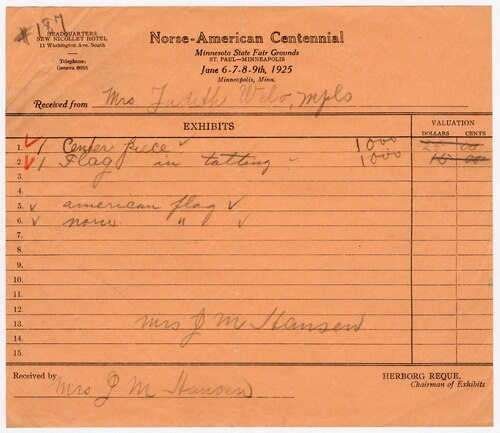 #187
HEADQUARTERS
NEW NICOLLET HOTEL
11 Washington Ave. South
Telephone:
Geneva 6035
Norse-American Centennial
Minnesota State Fair Grounds
ST. PAUL—MINNEAPOLIS
June 6-7-8-9th, 1925
Minneapolis, Minn.
Received from Mrs Judith Welo, mpls
EXHIBITS
VALUATION
DOLLARS CENTS
1. 1 Center Piece 10 00
2. 1 Flag in tatting 10 00 15 00
3.
4.
5. american flag
6. norw. "
7.
8.
9.
10.
11.
12.
13. mrs J M Hansen
14.
15.
Received by Mrs J M Hansen
HERBORG REQUE,
Chairman of Exhibits